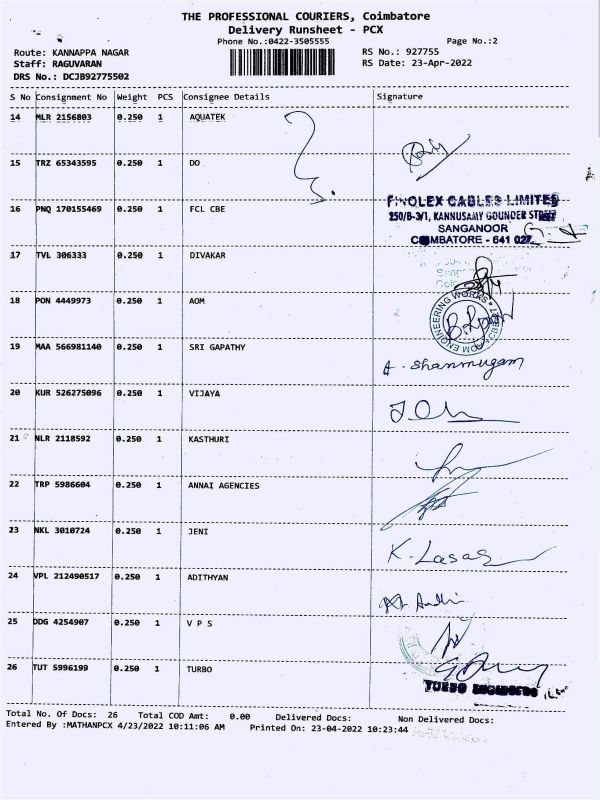 THE PROFESSIONAL COURIERS, Coimbatore
Delivery Runsheet - PCX
Phone No.:0422-3505555 Page No.:2
Route: KANNAPPA NAGAR RS No.: 927755
Staff: RAGUVARAN RS Date: 23-Apr-2022
DRS No.: DCJB92775502
S No Consignment No Weight PCS Consignee Details Signature
14 MLR 2156803 0.250 1 AQUATEK
15 TRZ 65343595 0.250 1 DO
FINOLEX CABLES LIMITED
16 PNQ 170155469 0.250 1 FCL CBE 250/B-3/1, KANNUSAMY GOUNDER STREET
SANGANOOR
COIMBATORE - 641 027.
17 TVL 306333 0.250 1 DIVAKAR
18 PON 4449973 0.250 1 AOM
AOM ENGINEERING WORKS
19 MAA 566981140 0.250 1 SRI GAPATHY
A. Shanmugam
20 KUR 526275096 0.250 1 VIJAYA
21 NLR 2118592 0.250 1 KASTHURI
22 TRP 5986604 0.250 1 ANNAI AGENCIES
23 NKL 3010724 0.250 1 JENI
K. Lasas
24 VPL 212490517 0.250 1 ADITHYAN
25 DDG 4254907 0.250 1 V P S
26 TUT 5996199 0.250 1 TURBO
TURBO ENGINEERS
Total No. Of Docs: 26 Total COD Amt: 0.00 Delivered Docs: Non Delivered Docs:
Entered By :MATHANPCX 4/23/2022 10:11:06 AM Printed On: 23-04-2022 10:23:44